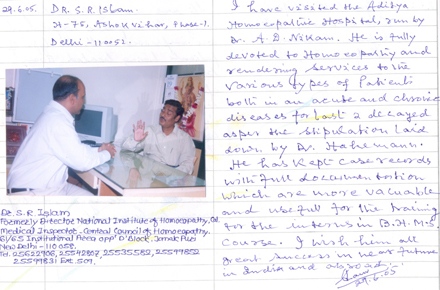 29.6.05. DR. S. R. Islam.
H-75, Ashok Vihar, Phase-I.
Delhi-110052.
Dr. S.R Islam
Formerly Director National Institute of Homoeopathy, Cal.
Medical Inspector - Central Council of Homoeopathy.
61/65 Institutional Area opp' D'Block, Janak Puri
New Delhi - 110 058.
Tel. 25622906, 25542807, 25535582, 25599852
25599831 Ext. 501,
I have visited the Aditya
Homoeopathic Hospital, run by
Dr. A. D. Nikam. He is fully
devoted to Homoeopathy and
rendering services to the
various types of Patients
both in an acute and chronic
diseases for last 2 decayed
as per the stipulation laid
down by Dr. Hahemann.
He has kept case records
with full documentation
which are more valuable
and useful for the training
for the interns in B.H.M.S
Course. I wish him all
great success in near future
in India and abroad.
29.6.05